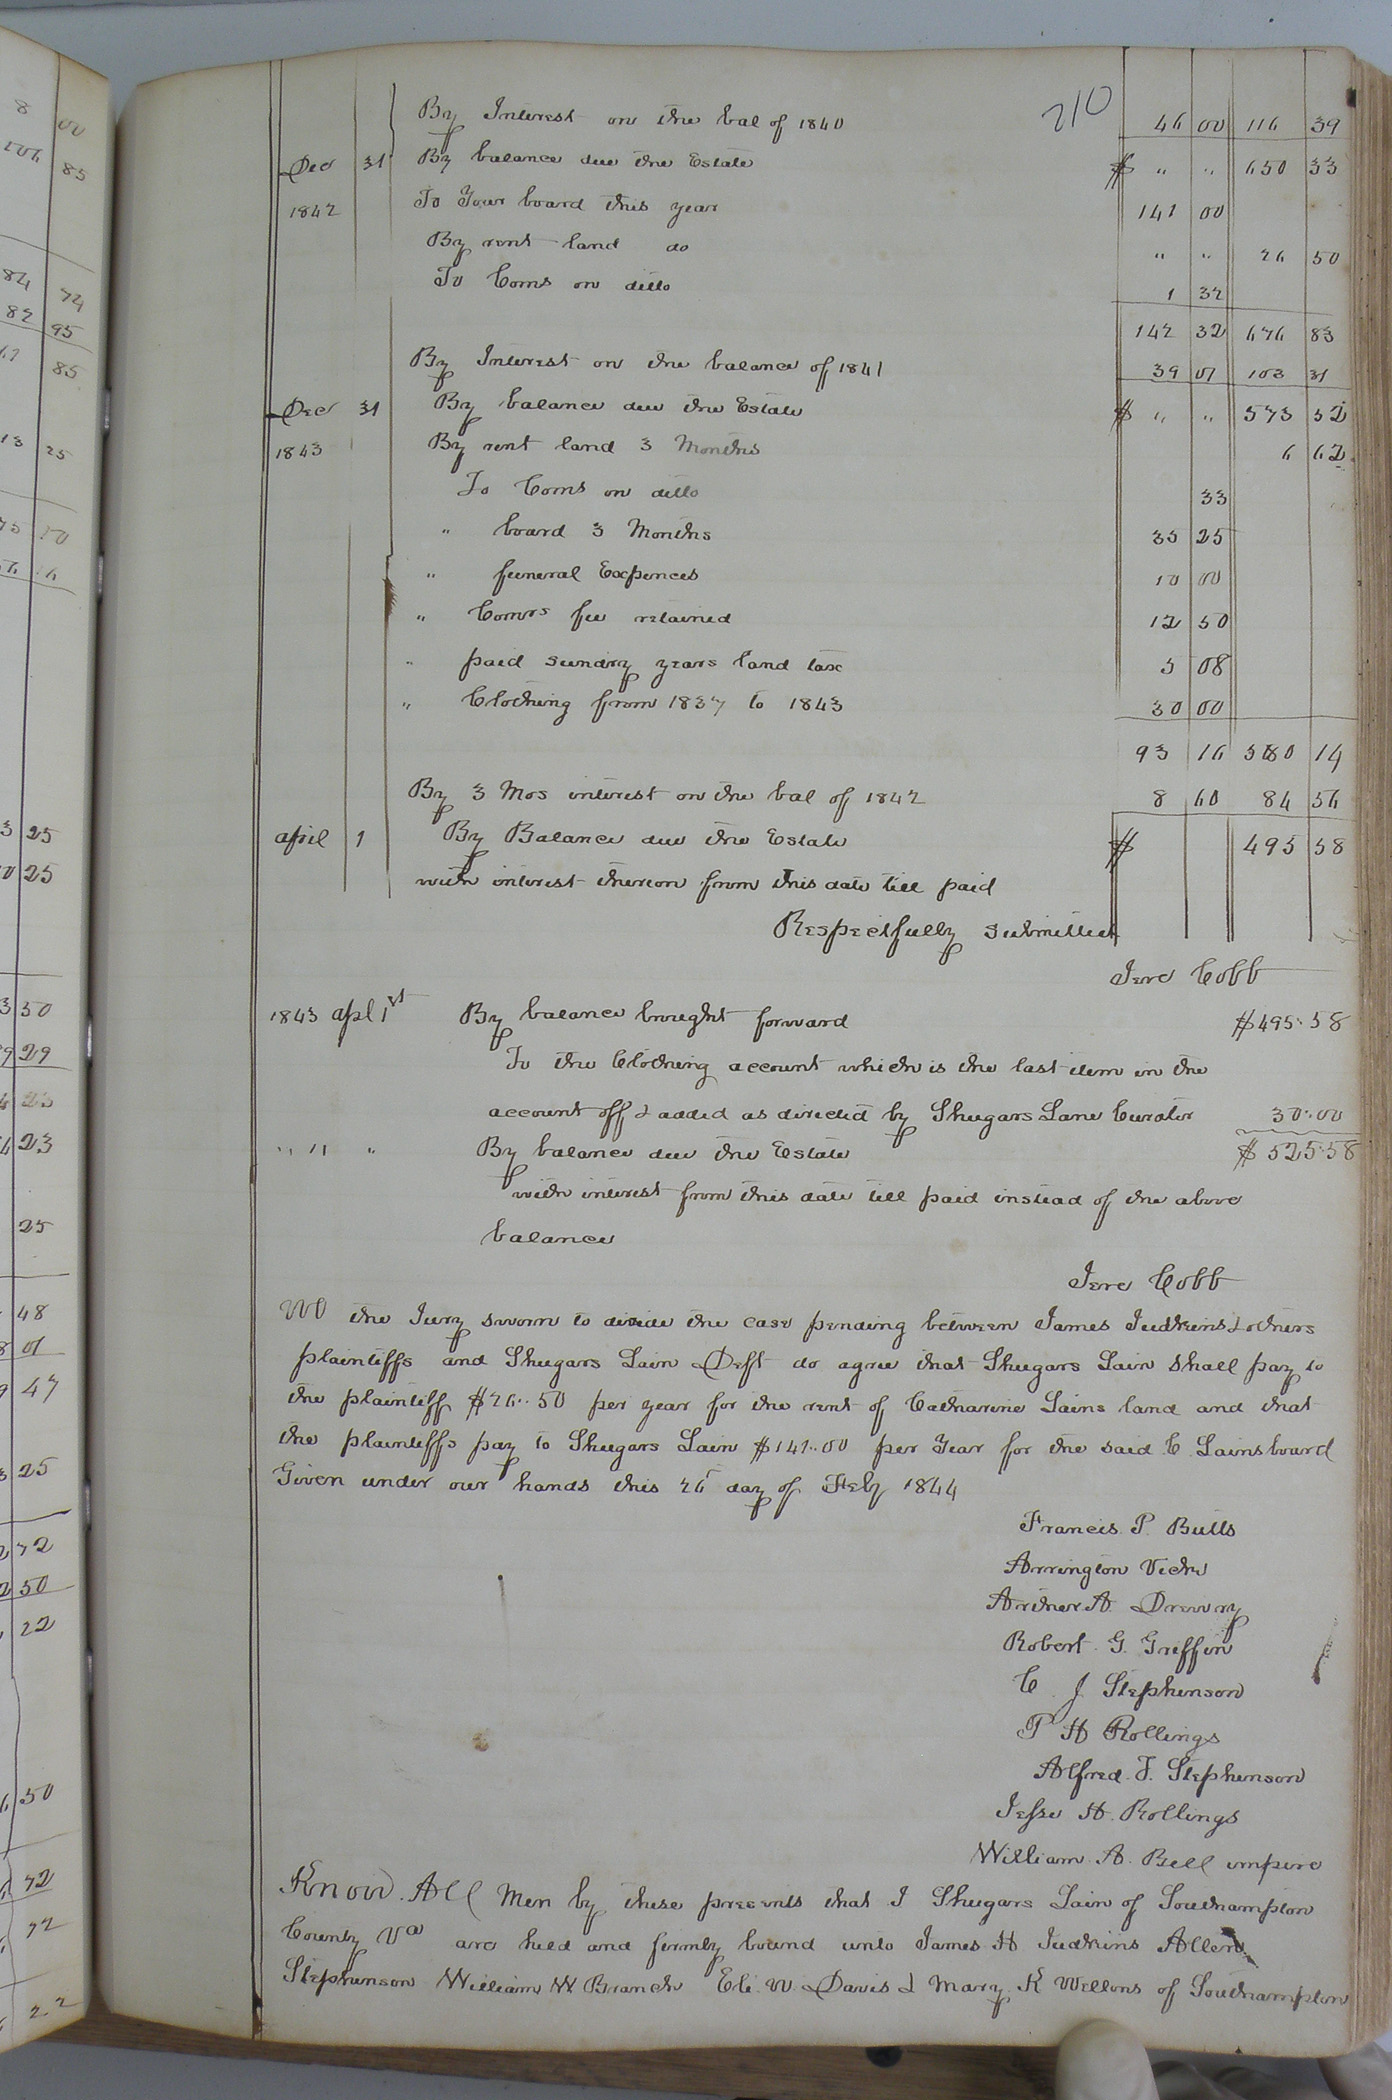 210
By Interest on the bal of 1840 46 00 116 39
Dec 31 By balance due the Estate $ " " 650 33
1842 To Your board this year 141 00
By rent land do " " 26 50
To Coms on ditto 1 32
142 32 676 83
By Interest on the balance of 1841 39 01 103 31
Dec 31 By balance due the Estate $ " " 573 52
1843 By rent land 3 Months 6 62
To Coms on ditto 33
" board 3 Months 35 25
" funeral Expences 10 00
" Comrs fee retained 12 50
" paid sundry years land tax 5 08
" Clothing from 1837 to 1843 30 00
93 16 580 14
By 3 Mos interest on the bal of 1842 8 60 84 56
april 1 By Balance due the Estate $ 495 58
with interest thereon from this date till paid
Respectfully submitted
Jere Cobb
1843 apl 1st By balance brought forward $495.58
To the Clothing account which is the last item in the
account off & added as directed by Shugars Lane Curator 30.00
" " " By balance due the Estate $525.58
with interest from this date till paid instead of the above
balance
Jere Cobb
We the Jury sworn to divide the case pending between James Judkins & others
plaintiffs and Shugars Lain Deft do agree that Shugars Lain shall pay to
the plaintiff $26..50 per year for the rent of Catharine Lains land and that
the plaintiffs pay to Shugars Lain $141..00 per Year for the said C. Lains board
Given under our hands this 26 day of Feby 1844
Francis. P. Butts
Arrington Vicks
Aridner A. Drewry
Robert. G. Griffin
C. J Stephenson
P H Rollings
Alfred. J. Stephenson
Jesse H. Rollings
William. A. Bell umpire
Know. All Men by these presents that I Shugars Lain of Southampton
County Va are held and firmly bound unto James H Judkins Allen
Stephenson William W. Branch Eli. W. Davis & Mary. K Wellons of Southampton